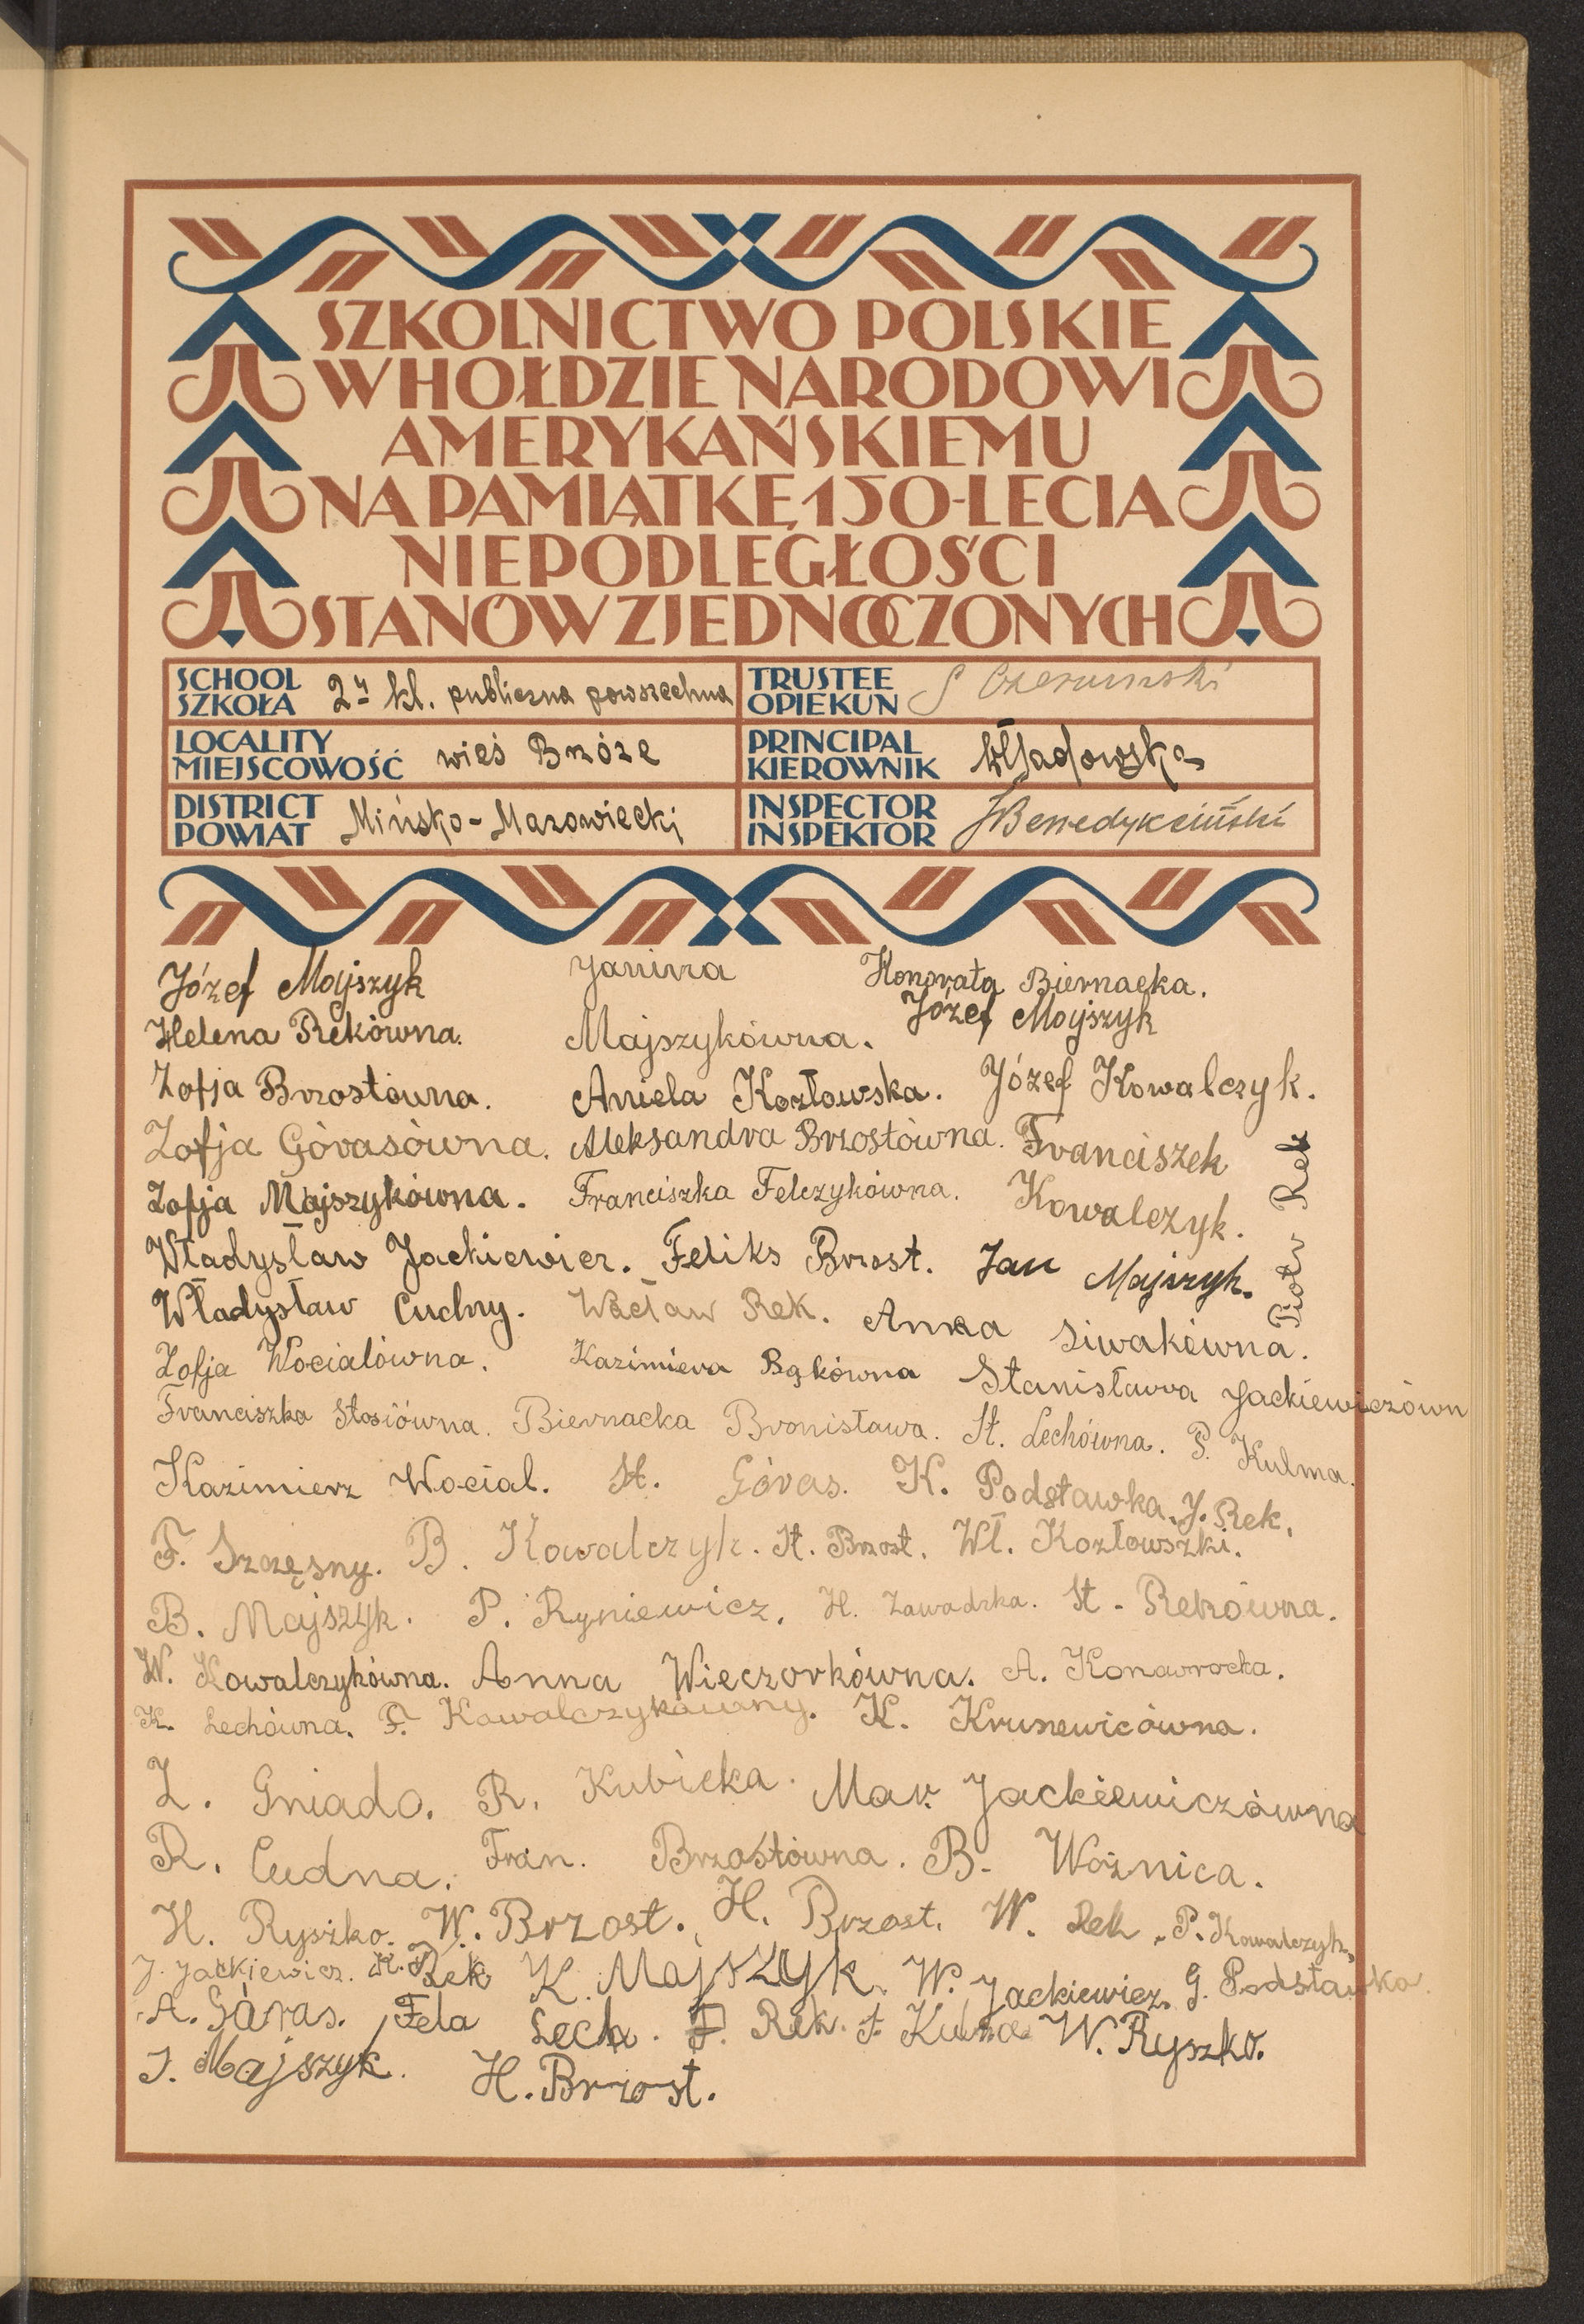 SZKOLNICTWO POLSKIE
W HOŁDZIE NARODOWI
AMERYKAŃSKIEMU
NA PAMIĄTKĘ 150-LECIA
NIEPODLEGŁOŚCI
STANÓW ZJEDNOCZONYCH
SCHOOL
SZKOŁA 2 kl. publiczna powszechna
TRUSTEE
OPIEKUN
LOCALITY
MIEJSCOWOŚĆ wieś Brzóze
PRINCIPAL
KIEROWNIK
DISTRICT
POWIAT Mińsko-Mazowiecki
INSPECTOR
INSPEKTOR Benedykciński
Józef Majszyk Janina Honorata Biernacka.
Józef Majszyk
Helena Rekówna. Majszykówna.
Zofja Brzostówna. Aniela Kozłowska. Józef Kowalczyk.
Zofja Górasówna. Aleksandra Brzostówna. Franciszek
Zofja Majszykówna. Franciszka Felczykówna. Kowalczyk.
Piotr Rek
Władysław Jackiewicz. Feliks Brzost. Jan Majszyk.
Władysław Cudny. Wacław Rek. Anna Siwakówna.
Zofja Wocialówna. Kazimiera Bąkówna Stanisława Jackiewiczówn
Franciszka Stosiówna. Biernacka Bronisława. St. Lechówna. P. Kulma.
Kazimierz Wocial. St. Góras. K. Podstawka. J. Rek.
F. Szczęsny. B. Kowalczyk. St. Brzost. Wł. Kozłowszki.
B. Majszyk. P. Ryniewicz. H. Zawadzka. St. Rekówna.
W. Kowalczykówna. Anna Wieczorkówna. A. Konawrocka.
K. Lechówna. F. Kowalczykówny. K. Krusewicówna.
Z. Gniado. R. Kubicka. Mar. Jackiewiczówna
R. Cudna. Fran. Brzostówna. B. Woźnica.
H. Ryszko. W. Brzost. H. Brzost. W. Rek. P. Kowalczyk.
J. Jackiewicz. H. Rek K. Majszyk. W. Jackiewicz. G. Podstawka.
A. Góras. Fela Lech. F. Rek. F. Kulma W. Ryszko.
J. Majszyk. H. Brzost.